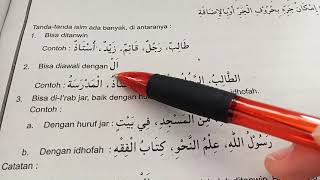 Tanda-tanda isim ada banyak, di antaranya :
1. Bisa ditanwin
Contoh : طَالِبٌ، رَجُلٌ، قَائِمٌ، زَيْدٌ، أُسْتَاذٌ
2. Bisa diawali dengan اَلْ
Contoh : الطَّالِبُ، الْمَدْرَسَةُ
3. Bisa di-I'rab jar, baik dengan idhofah.
Contoh :
a. Dengan huruf jar : مِنَ الْمَسْجِدِ، فِي بَيْتٍ
b. Dengan idhofah : رَسُوْلُ اللهِ، عِلْمُ النَّحْوِ، كِتَابُ الْفِقْهِ
Catatan :